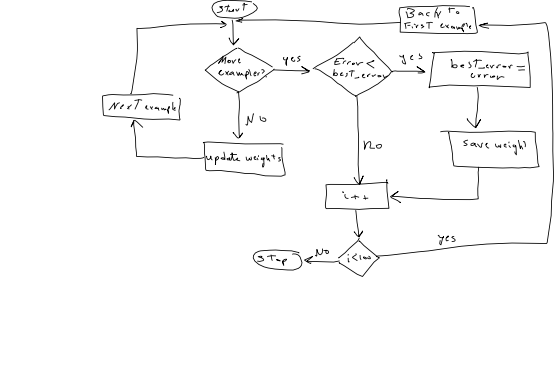 Start
Back To
First example
More
examples?
yes
Error <
best_error
yes
best_error =
error
Next example
No
update weights
no
save weight
i++
yes
i<100
No
STop